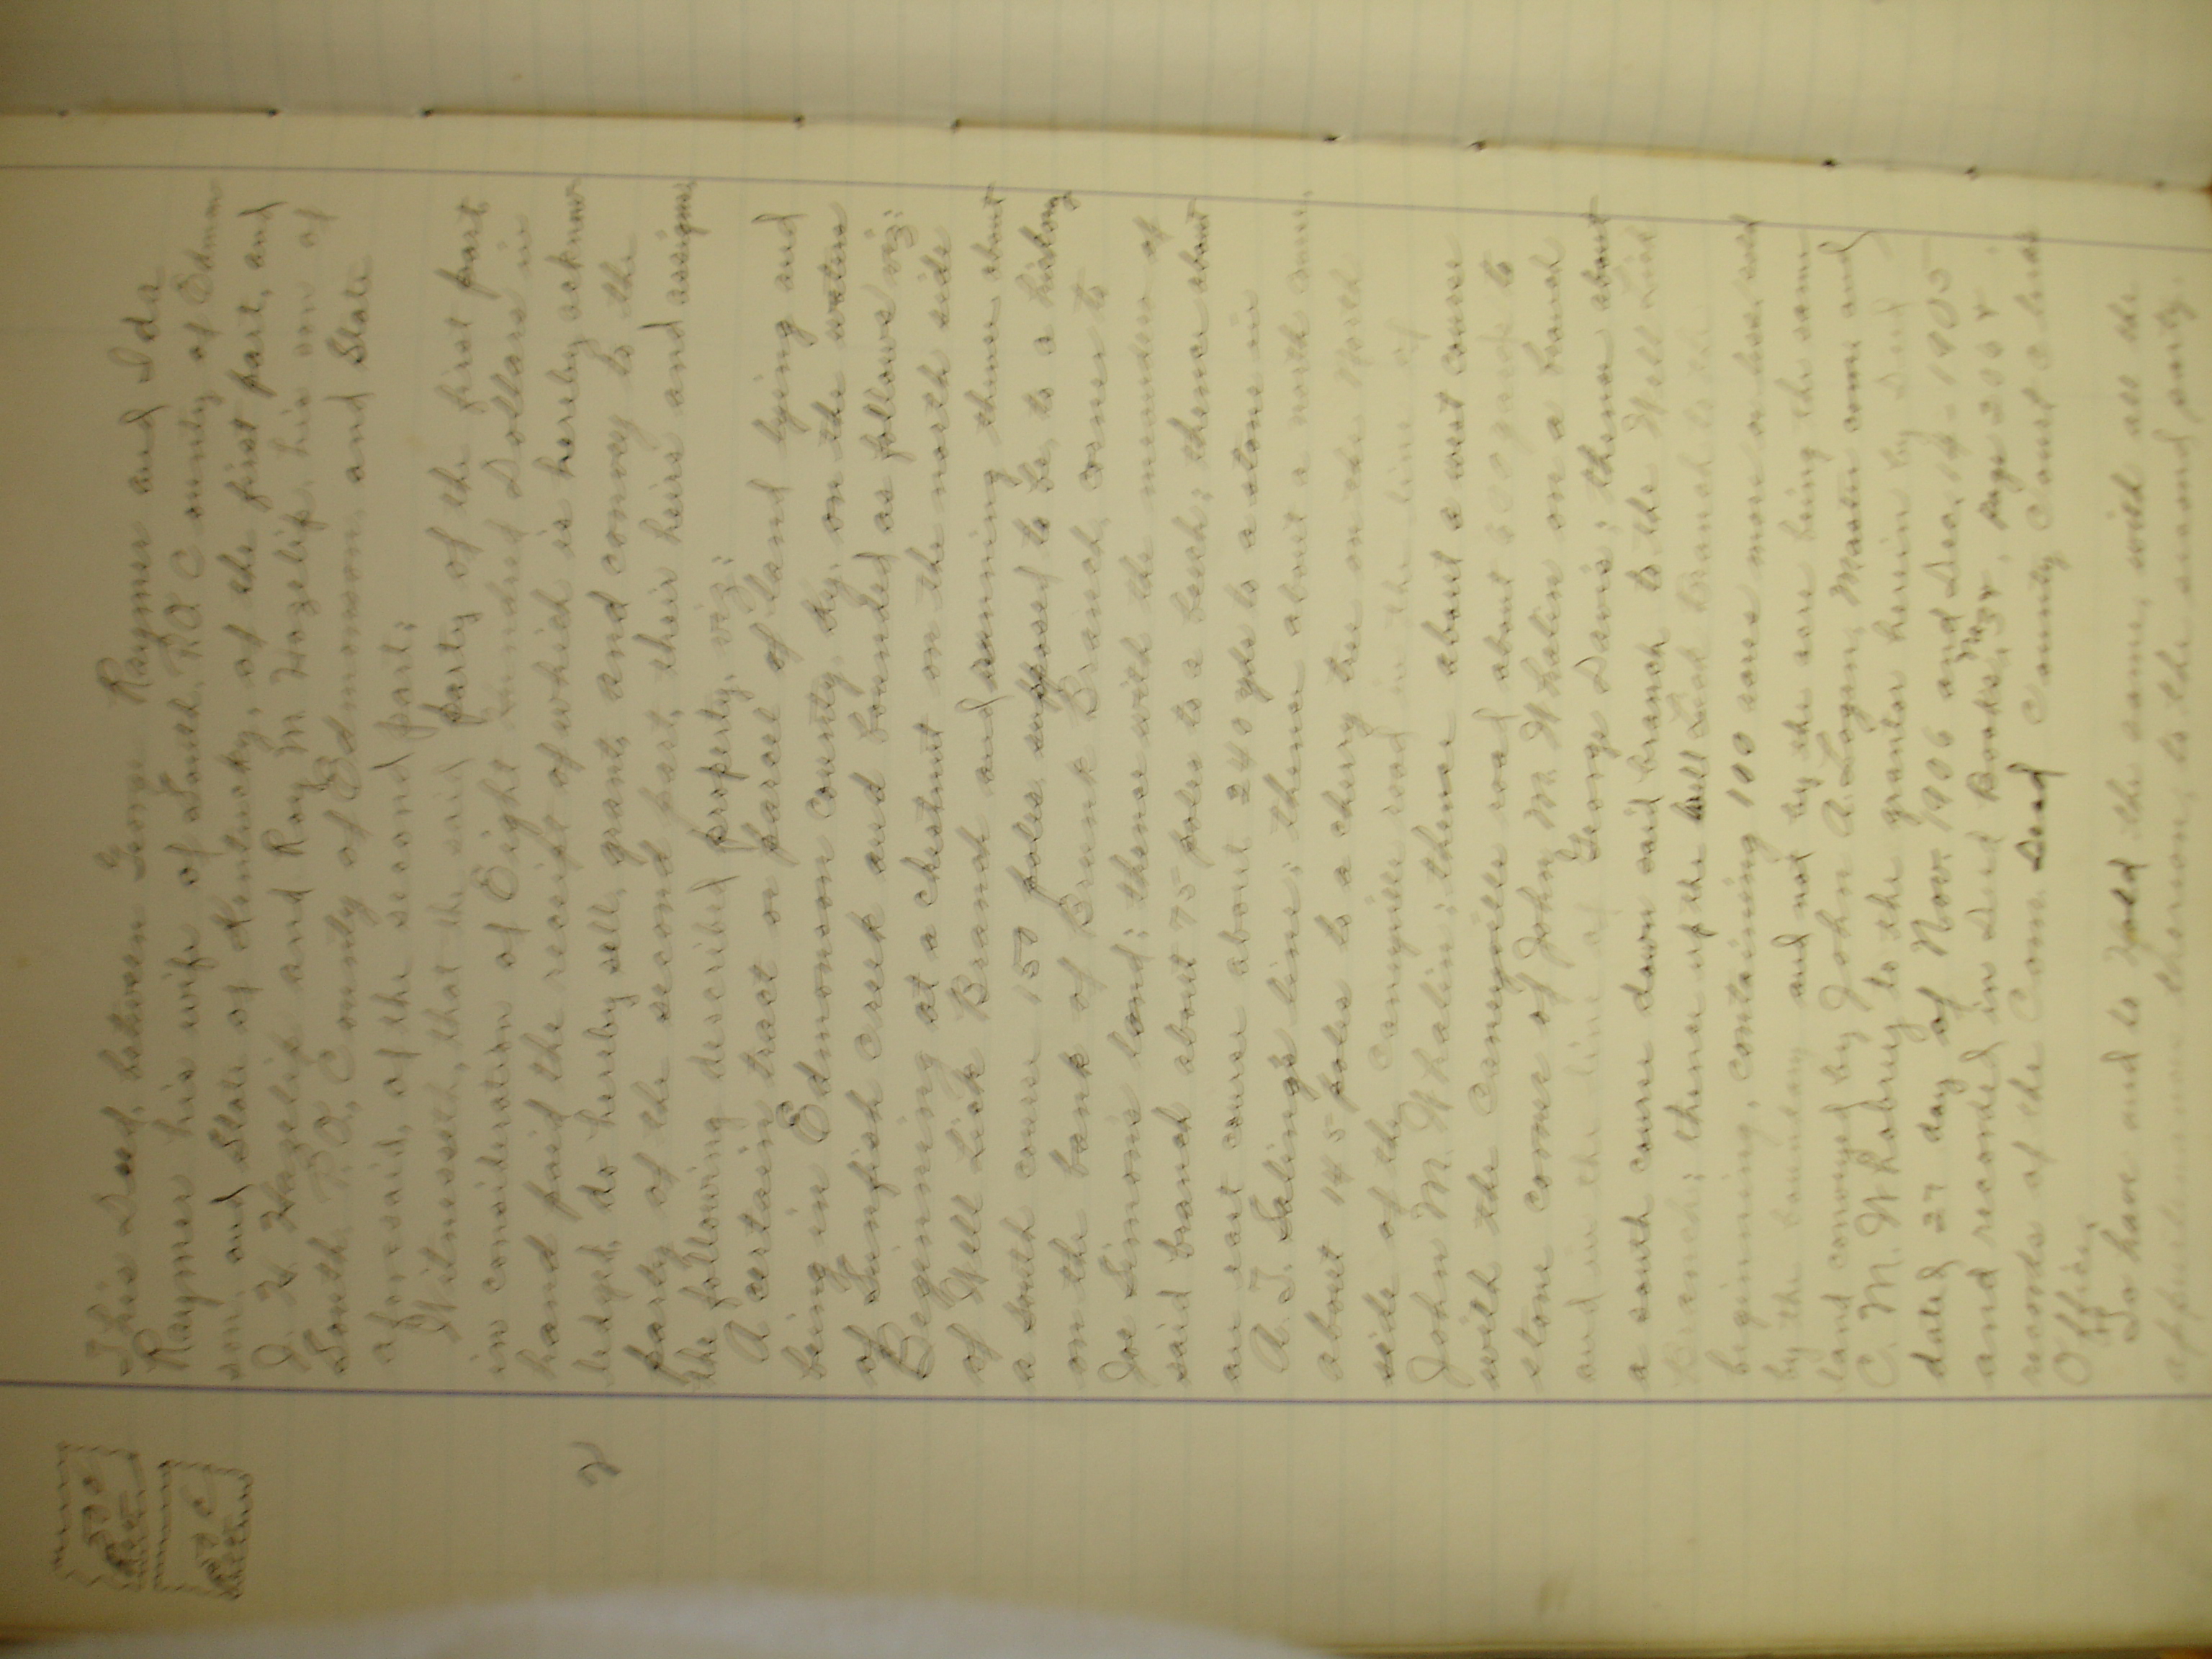 This Deed, between George Raymer and Ida
Raymer his wife of South, P.O. County of Edmon
son, and State of Kentucky, of the first part, and
J. H. Hazelip and Roy M Hazelip, his son of
South P.O., County of Edmonson, and State
aforesaid, of the second part;
Witnesseth, that the said party of the first part
in consideration of Eight hundred Dollars in
hand paid the receipt of which is hereby acknow
ledged, do hereby sell, grant, and convey to the
party of the second part, their heirs and assigns,
the following described property, viz:
A certain tract or parcel of land lying and
being in Edmonson county, Ky, on the waters
of Sunfish Creek and bounded as follows viz:
Beginning at a chestnut on the north side
of Well Lick Branch and running thence about
a south course 150 poles, supposed to be, to a hickory
on the bank of Brunk Branch, corner to
Joe Simons land; thence with the meanders of
said branch about 75 poles to a beech; thence about
an east course about 240 yds to a stone in
A. J. Salings line; thence about a north course
about 145 poles to a cherry tree on the North
side of the Caneyville road in the line of
John M. Whalin; thence about a west course
with the Caneyville road about 600 yards to
stone corner of John M. Whalin on a branch
and in the line of George Davis; thence about
a south course down said branch to the Well Lick
Branch; thence up the Well Lick Branch to the
beginning, containing 100 acres more or less, sold
by the boundary and not by the acre being the same
land conveyed by John A. Logan, Master com and
C. M. Whobrey to the grantor herein by Deed
dated 27 day of Nov. 1906 and Dec. 14 - 1905
and recorded in Deed Books, No 34, Page 206 &
records of the Com. Deed County Court Clerks
Office,
To have and to hold the same, with all the
appurtenances thereon, to the second party.
2
50 C
50 C